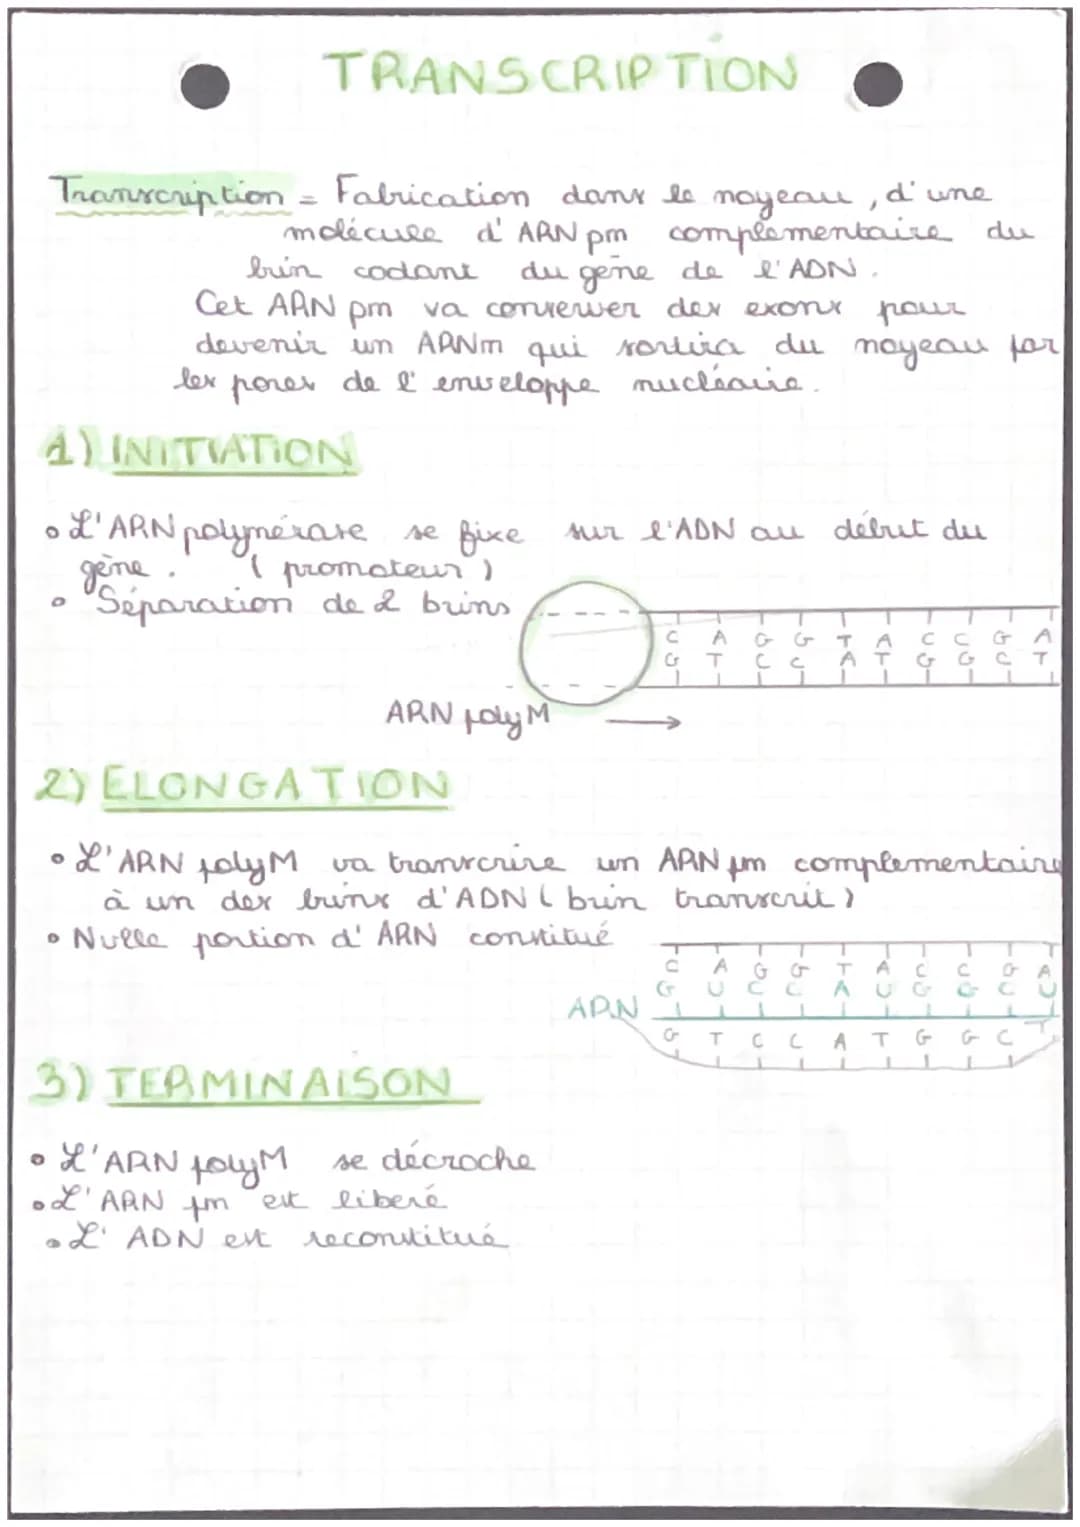 TRANSCRIPTION
Transcription = Fabrication dans le noyeau, d'une
molécule d'ARN pm complementaire du
brin codant du gène de l'ADN.
Cet ARN pm va conserver des exons pour
devenir un ARNm qui sortira du noyeau par
les pores de l'enveloppe nucléaire.
1) INITIATION
• L'ARN polymérase se fixe sur l'ADN au début du
gène. (promoteur)
• Séparation de 2 brins
C A G G T A C C G A
G T C C A T G G C T
ARN polyM →
2) ELONGATION
• L'ARN polyM va transcrire un ARN pm complementaire
à un des brins d'ADN (brin transcrit)
• Nvelle portion d'ARN constitué
C A G G T A C C G A
G U C C A U G G C U
ARN
G T C C A T G G C T
3) TERMINAISON
• L'ARN polyM se décroche
• L'ARN pm est liberé
• L'ADN est reconstitué